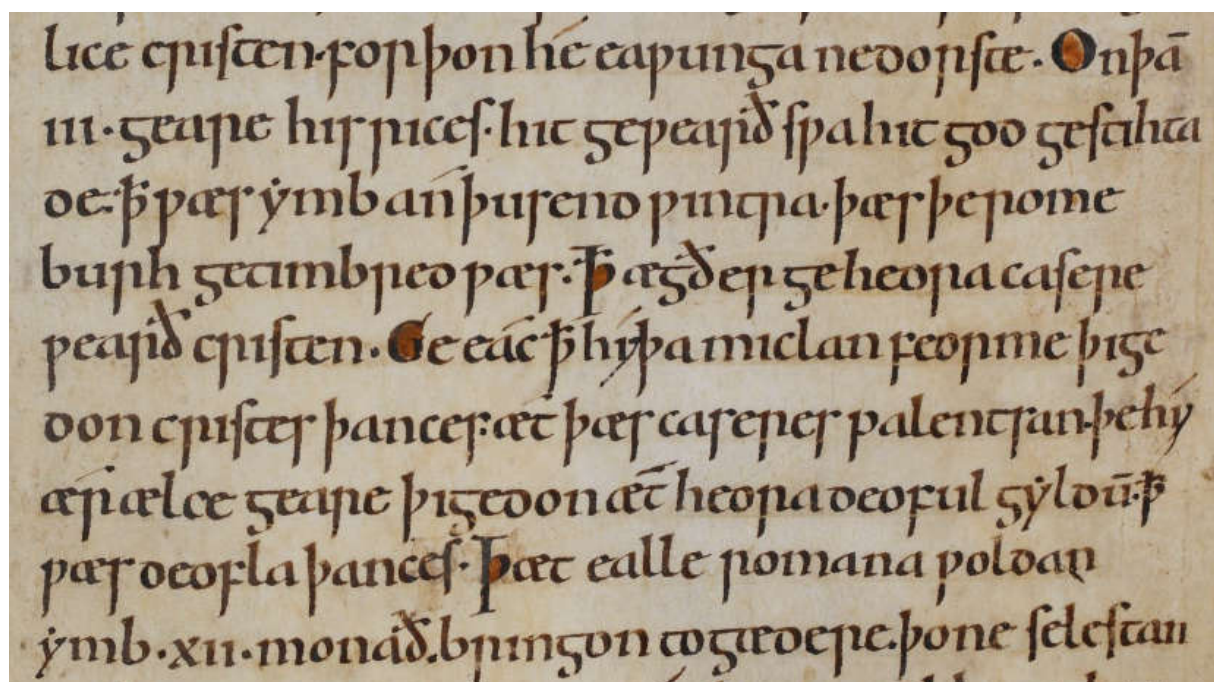 lice cristen·forþon hé eaƿunga nedorste· Onþā
iii·geare hisrices·hit geƿearð sƿahit god gestihta
de:ꝥ ƿæs ẏmb án þusend ƿintra·þæs þe rome
burh getimbred ƿæs·ꝥ ægðer ge heora casere
ƿearð cristen· Ge eác ꝥ hẏ þa miclan feorme þige
don cristes þances·æt þæs caseres palentsan·þe hẏ
ǽr ælce geare þigedon æt heora deoful gẏldū·ꝥ
ƿæs deofla þances· Þæt ealle romana ƿoldan
ẏmb·xii·monað·bringon togædere·þone selestan